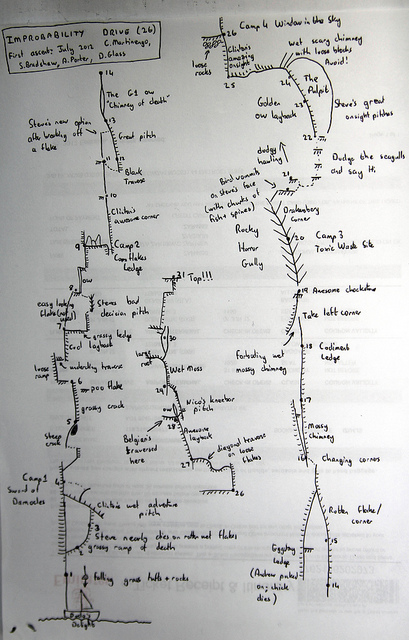 IMPROBABILITY DRIVE (26)
First ascent: July 2012 C. Martinengo,
S. Bradshaw, A. Porter, D. Glass
14
The G1 ow
"Chimney of death"
13
Steve's new option
after working off
a flake
Great pitch
11
12
Black
Traverse
10
Clinton's
awesome corner
9
Camp 2
Cornflakes
Ledge
ow
8
easy looking
flake (not
used)
Steves bad
decision pitch
7
grassy ledge
Cool layback
loose
ramp
undercling traverse
6
poo flake
grassy crack
5
Steep
crack
Camp 1
Sword of
Damocles
4
Clinton's wet adventure
pitch
3
Steve nearly dies on rotten wet flakes
grassy ramp of death
2
1
falling grass tufts + rocks
Delight
31 Top!!!
30
loose
rock
Wet Moss
29
Nico's kneebar
pitch
ow
28
Belgian's
traversed
here
Awesome
layback
27
diagonal traverse
on loose
flakes
26
26
Camp 4 Window in the Sky
loose
rocks
Clinton's
amazing
onsight
25
wet scary chimney
with loose blocks
Avoid!
24
The
Pulpit
23
Golden
ow layback
Steve's great
onsight pitches
22
dodgy
hauling!
Dodge the seagulls
and say Hi
21
Bird vommits
on Steve's face
(with chunks of
fish + spines)
Drakensberg
Corner
Rocky
Horror
Gully
20
Camp 3
Toxic Waste Site
19
Awesome chockstone
Take left corner
18
Codiment
Ledge
Forboding wet
mossy chimney
17
Mossy
chimney
16
Changing corners
Rotten flake/
corner
15
Eggstay
Ledge
(Andrew puked
on, chick
dies)
14